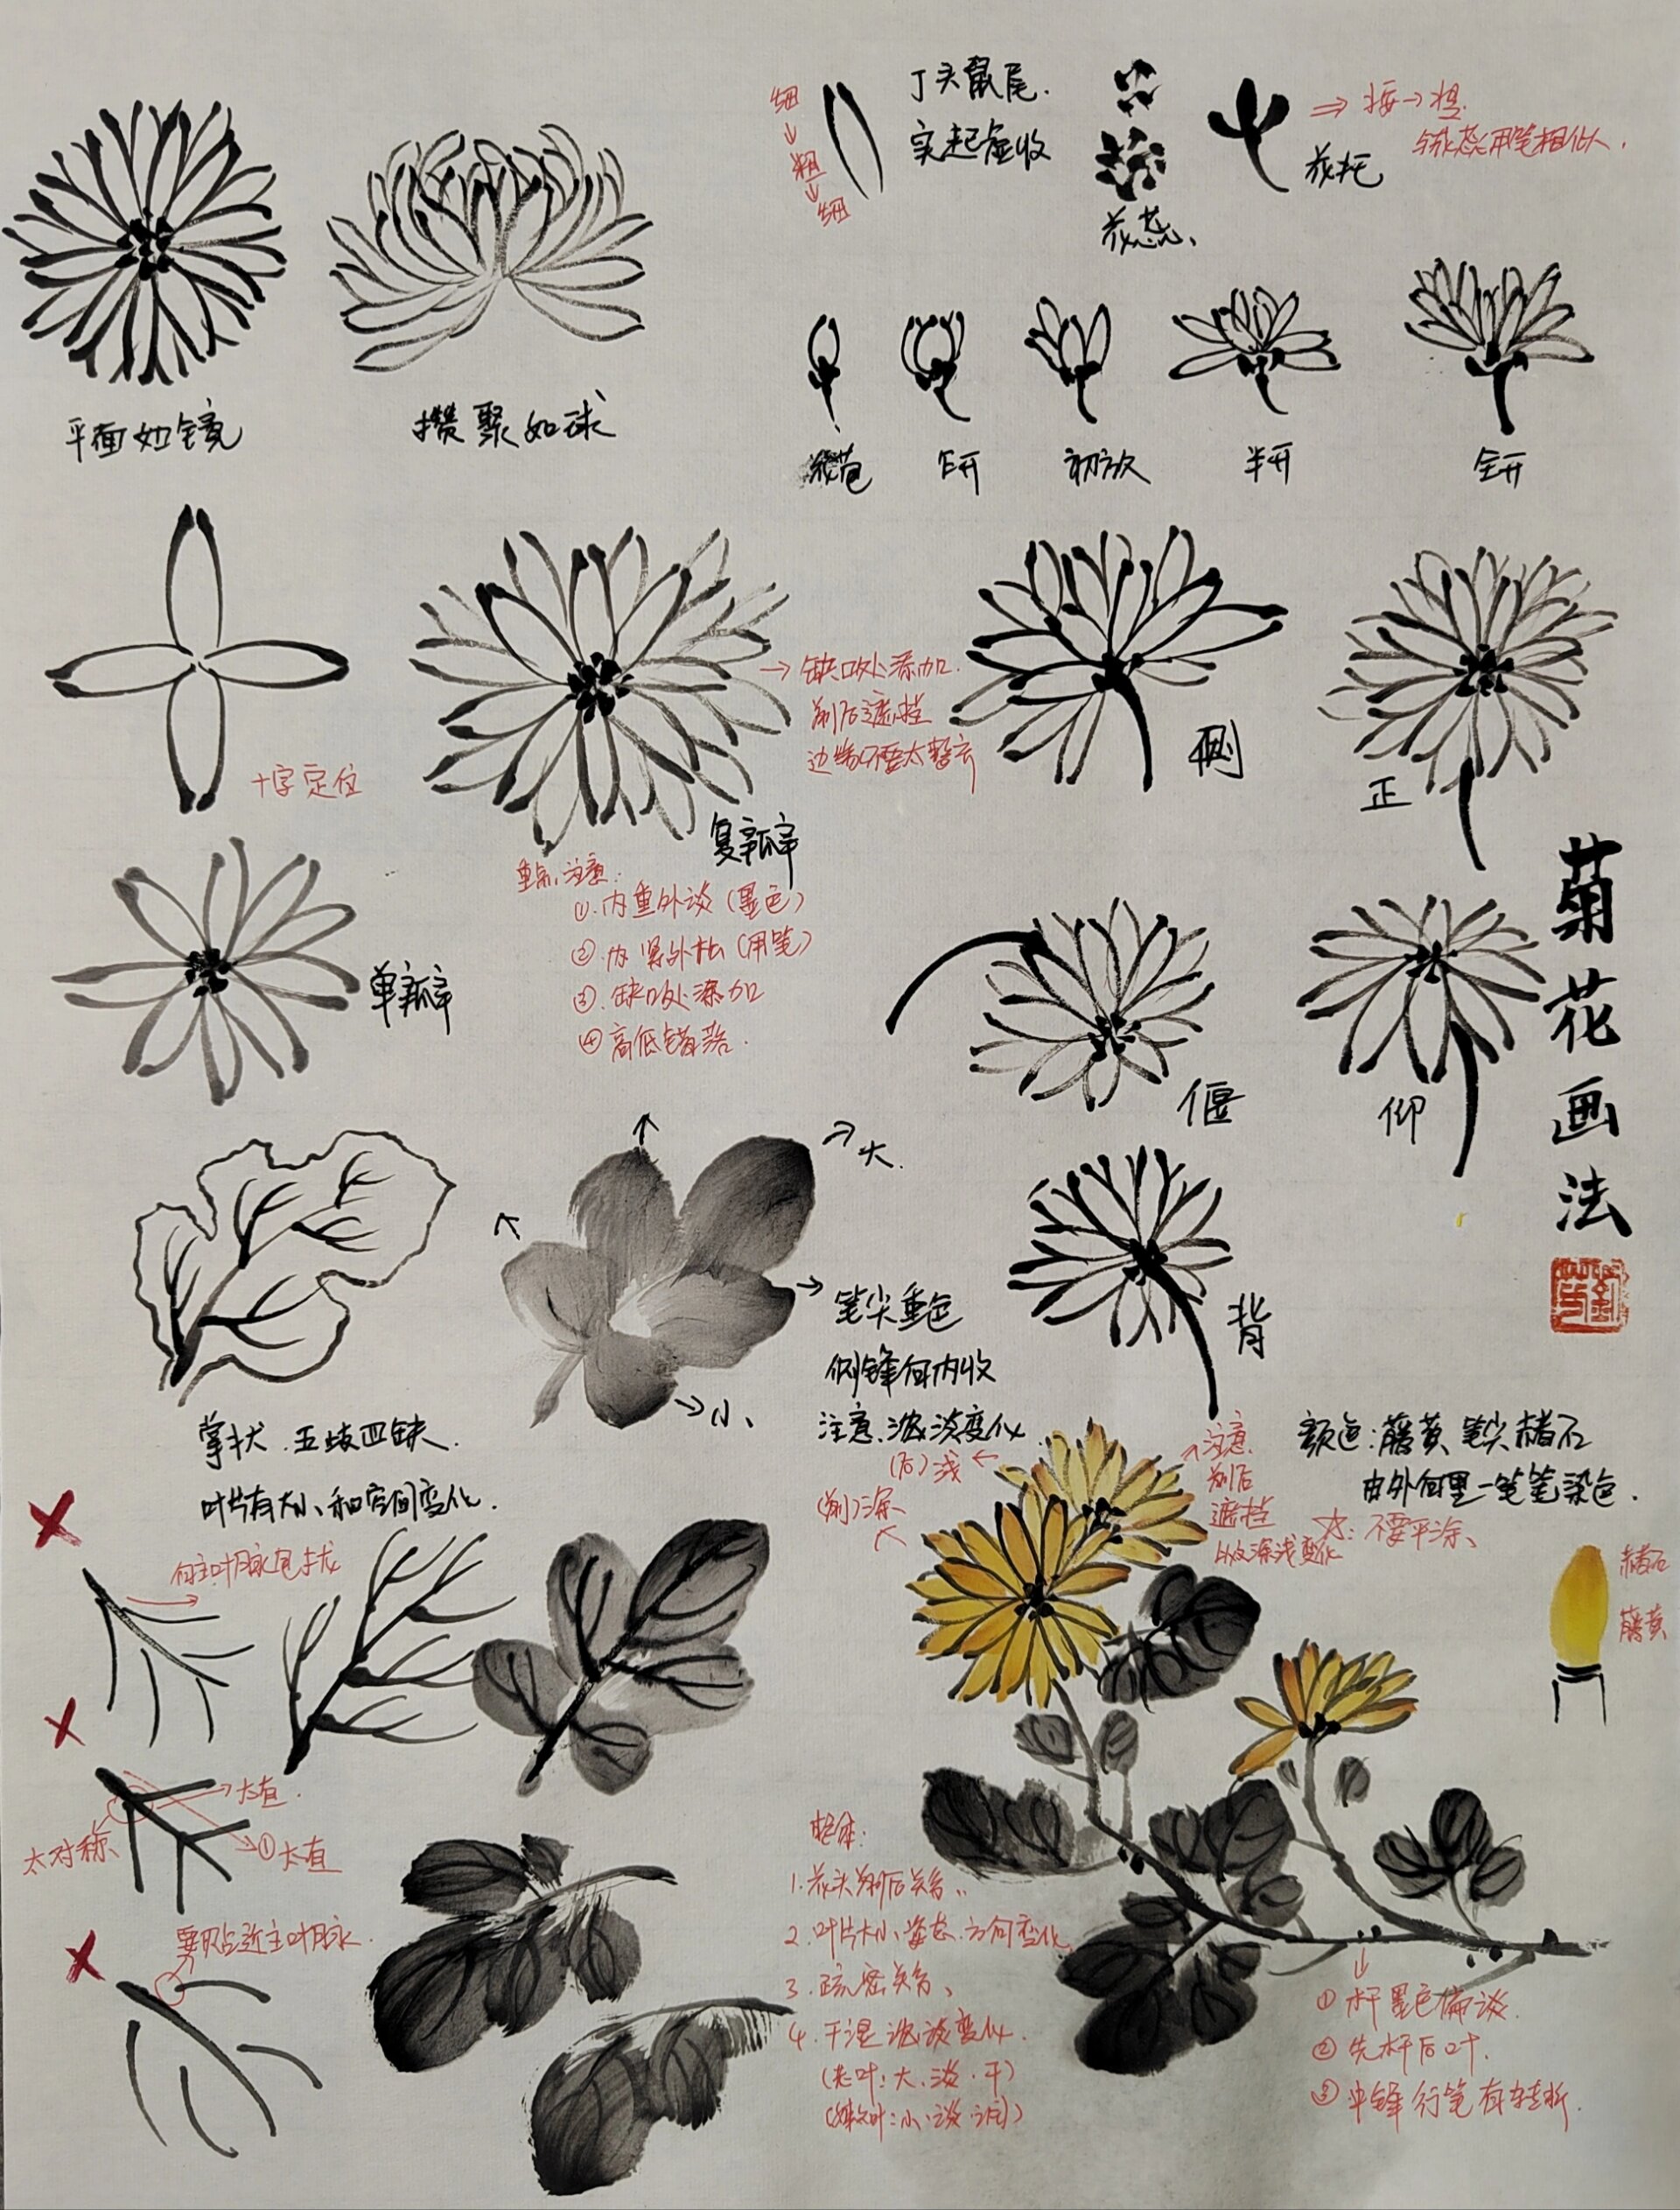 菊花画法
平面如镜
攒聚如球
细
粗
细
丁头鼠尾.
实起虚收
花蕊、
花托
⇒ 按→提.
与花蕊用笔相似.
花苞
乍开
初放
半开
全开
十字定位
复瓣
→ 缺口处添加.
前后遮挡
边缘不要太整齐
重点注意:
①.内重外淡(墨色)
②.内紧外松(用笔)
③.缺口处添加
④高低错落.
单瓣
侧
正
偃
仰
背
大.
小、
笔尖重色
侧锋向内收
注意.浓淡变化
掌状.五岐四缺.
叶片有大小和空间变化.
颜色:藤黄 笔尖赭石
由外向里一笔笔染色.
☆:不要平涂、
(后)浅
(前)深
注意
前后
遮挡
以及深浅变化
赭石
藤黄
向主叶脉包拢
太直.
太对称
①太直
要贴近主叶脉.
整体:
1.花头前后关系..
2.叶片大小、姿态.方向变化
3.疏密关系、
4.干湿浓淡变化.
(老叶:大.淡.干)
①杆墨色偏淡.
②先杆后叶.
③中锋行笔有转折.